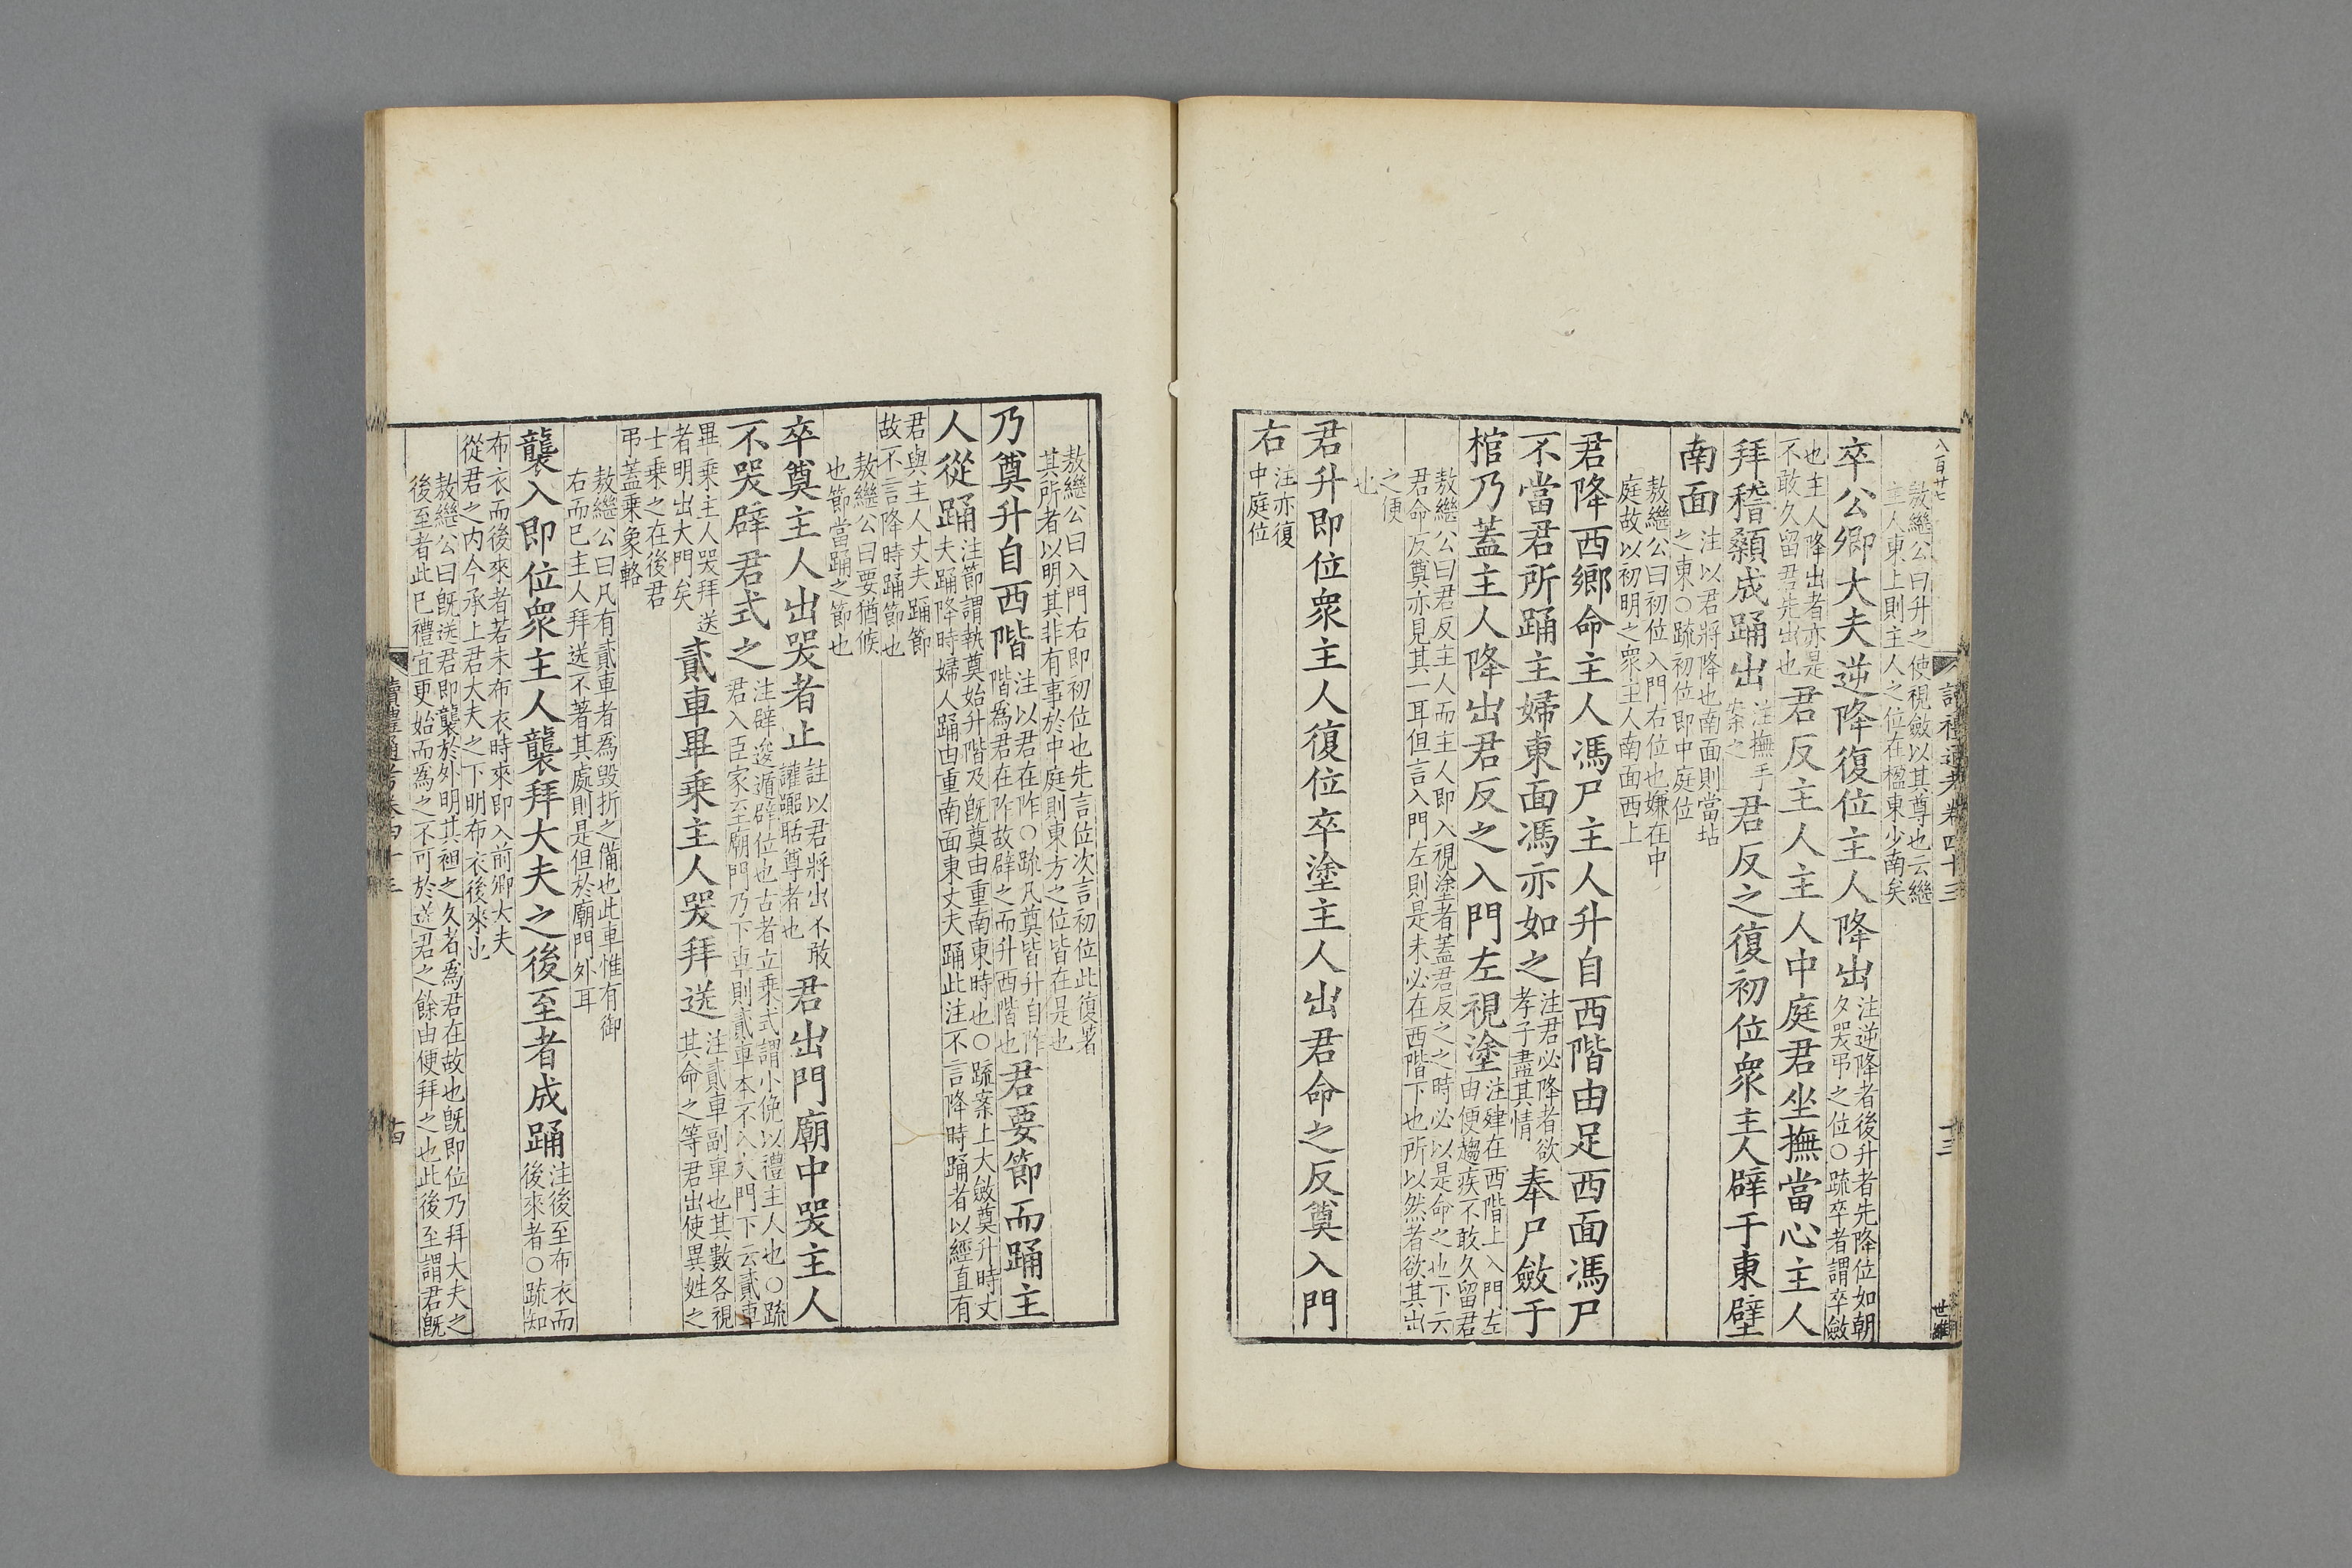 八百廿七
讀禮通考卷四十三
十三
敖繼公曰升之使視斂以其尊也云繼
主人東上則主人之位在楹東少南矣
卒公卿大夫逆降復位主人降出
注逆降者後升者先降位如朝
夕哭弔之位○疏卒者謂卒斂
也主人降出者亦是
不敢久留君先出也
君反主人主人中庭君坐撫當心主人
拜稽顙成踊出
注撫手
案之
君反之復初位衆主人辟于東壁
南面
注以君將降也南面則當坫
之東○疏初位即中庭位
敖繼公曰初位入門右位也嫌在中
庭故以初明之衆主人南面西上
君降西鄉命主人馮尸主人升自西階由足西面馮尸
不當君所踊主婦東面馮亦如之
注君必降者欲
孝子盡其情
奉尸斂于
棺乃蓋主人降出君反之入門左視塗
注肂在西階上入門左
由便趨疾不敢久留君
敖繼公曰君反主人而主人即入視塗者蓋君反之之時必以是命之也下云
君命反奠亦見其一耳但言入門左則是未必在西階下也所以然者欲其出
之便
也
君升即位衆主人復位卒塗主人出君命之反奠入門
右
注亦復
中庭位
敖繼公曰入門右即初位也先言位次言初位此復著
其所者以明其非有事於中庭則東方之位皆在是也
乃奠升自西階
注以君在阼○疏凡奠皆升自阼
階爲君在阼故辟之而升西階也
君要節而踊主
人從踊
注節謂執奠始升階及旣奠由重南東時也○疏案上大斂奠升時丈
夫踊降時婦人踊由重南面東丈夫踊此注不言降時踊者以經直有
君與主人丈夫踊節
故不言降時踊節也
敖繼公曰要猶候
也節當踊之節也
卒奠主人出哭者止
註以君將出不敢
讙囂聒尊者也
君出門廟中哭主人
不哭辟君式之
注辟逡遁辟位也古者立乘式謂小俛以禮主人也○疏
君入臣家至廟門乃下車則貳車本不入大門下云貳車
畢乘主人哭拜送
者明出大門矣
貳車畢乘主人哭拜送
注貳車副車也其數各視
其命之等君出使異姓之
士乘之在後君
弔蓋乘象輅
敖繼公曰凡有貳車者爲毁折之備也此車惟有御
右而已主人拜送不著其處則是但於廟門外耳
襲入即位衆主人襲拜大夫之後至者成踊
注後至布衣而
後來者○疏知
布衣而後來者若未布衣時來即入前卿大夫
從君之内今承上君大夫之下明布衣後來也
敖繼公曰旣送君即襲於外明其袒之久者爲君在故也旣即位乃拜大夫之
後至者此已禮宜更始而爲之不可於送君之餘由便拜之也此後至謂君旣
讀禮通考卷四十三
十四